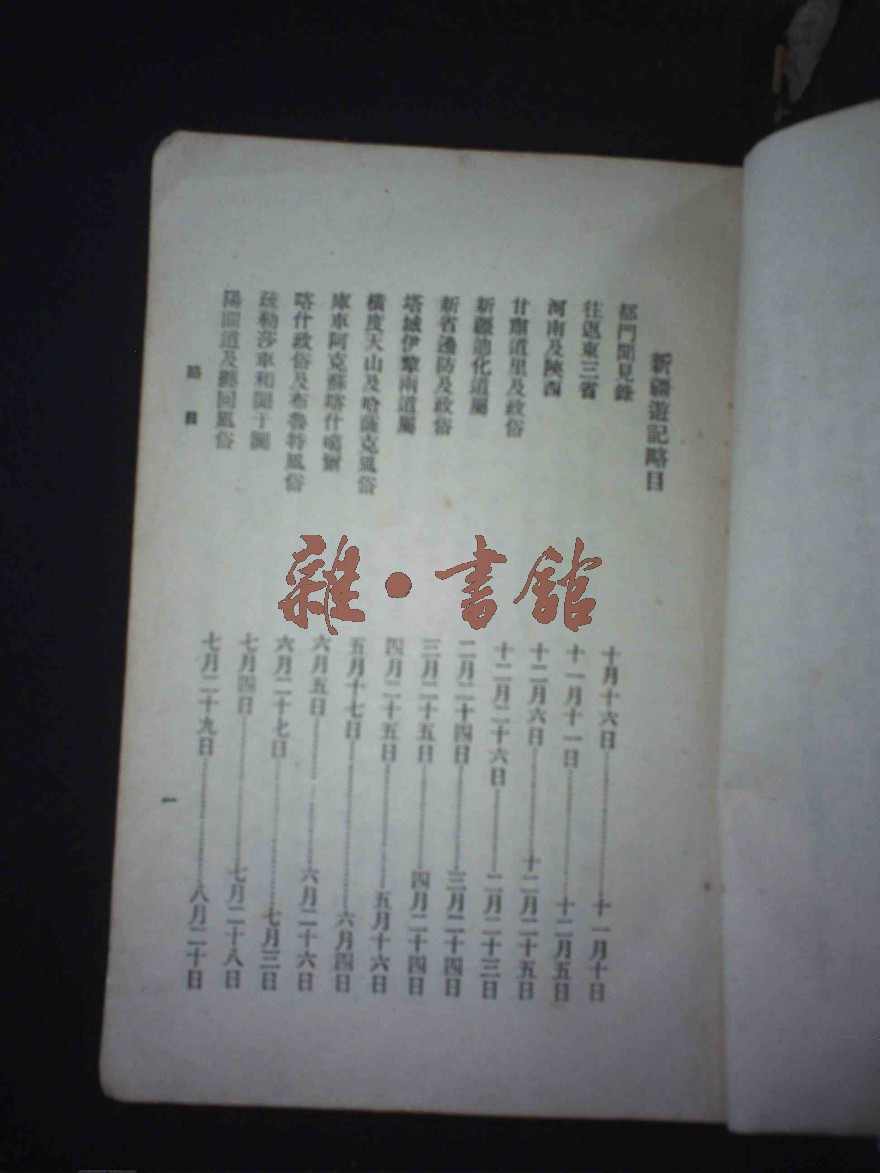 新疆遊記略目
都門聞見錄 十月十六日………十一月十日
往返東三省 十一月十一日………十二月五日
河南及陝西 十二月六日………十二月二十五日
甘肅道里及政俗 十二月二十六日………二月二十三日
新疆迪化道屬 二月二十四日………三月二十四日
新省邊防及政俗 三月二十五日………四月二十四日
塔城伊犂兩道屬 四月二十五日………五月十六日
橫度天山及哈薩克風俗 五月十七日………六月四日
庫車阿克蘇喀什噶爾 六月五日………六月二十六日
喀什政俗及布魯特風俗 六月二十七日………七月三日
疏勒莎車和闐于闐 七月四日………七月二十八日
陽關道及纏回風俗 七月二十九日………八月二十日
略目
一
雜·書館